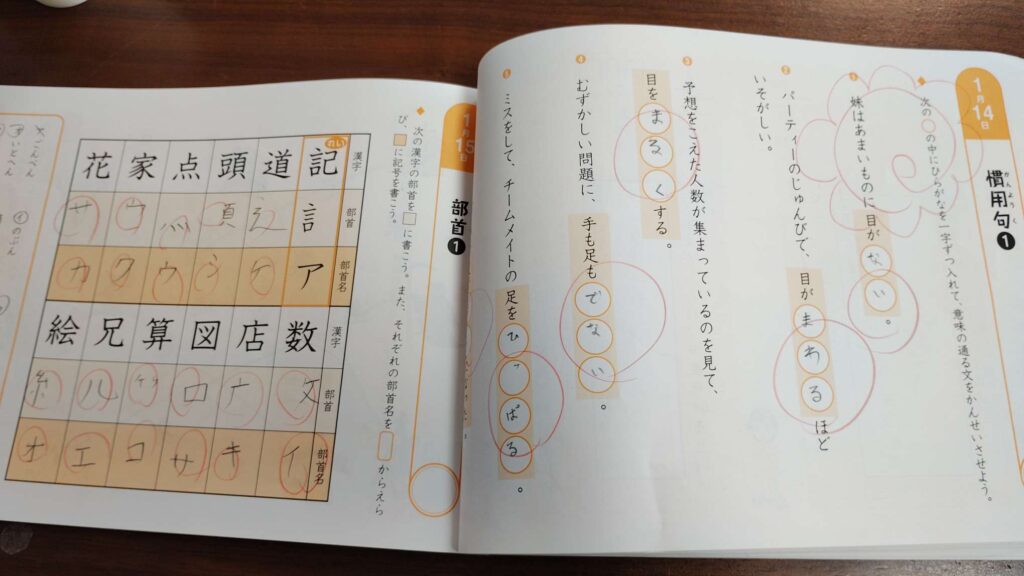 1月14日
慣用句❶
かんようく
◆次の○の中にひらがなを一字ずつ入れて、意味の通る文をかんせいさせよう。
❶ 妹はあまいものに目がない。
❷ パーティーのじゅんびで、目がまわるほど
いそがしい。
❸ 予想をこえた人数が集まっているのを見て、
目をまるくする。
❹ むずかしい問題に、手も足もでない。
❺ ミスをして、チームメイトの足をひっぱる。
1月15日
部首❶
◆次の漢字の部首を□に書こう。また、それぞれの部首名を□からえら
び、□に記号を書こう。
漢字 部首 部首名
れい
記 言 ア
道 辶 ケ
頭 頁
点 灬 ウ
家 宀 ク
花 サ カ
漢字 部首 部首名
数 攵 イ
店 キ
図 囗 サ
算 コ
兄 ル エ
絵 糸 オ
ごんべん
いとへん
のぶん